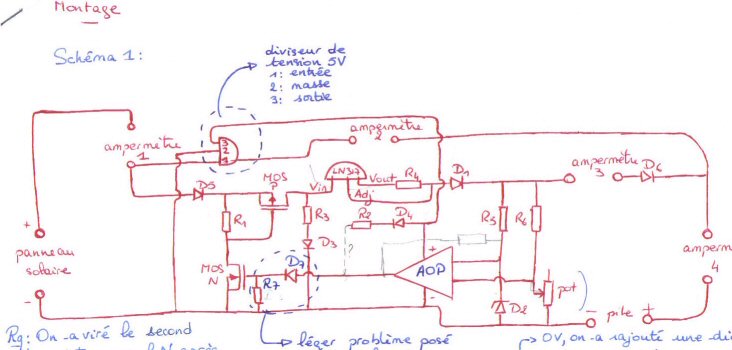 Montage
Schéma 1:
diviseur de
tension 5V
1: entrée
2: masse
3: sortie
ampermètre
1
3
2
1
ampermètre
2
D5
MOS
P
Vin
LM317
Vout
Adj
R4
D1
ampermètre
3
D6
R1
R3
R2
D4
R5
R6
+
panneau
solaire
-
MOS
N
D3
D7
R7
?
+
AOP
-
D2
pot
amperm
4
- pile +
Rq: On a viré le second
léger problème posé
0V, on a rajouté une di